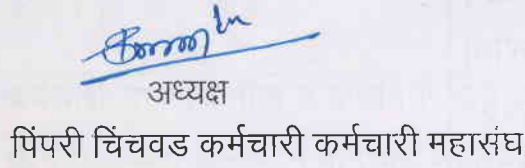 अध्यक्ष
पिंपरी चिंचवड कर्मचारी कर्मचारी महासंघ